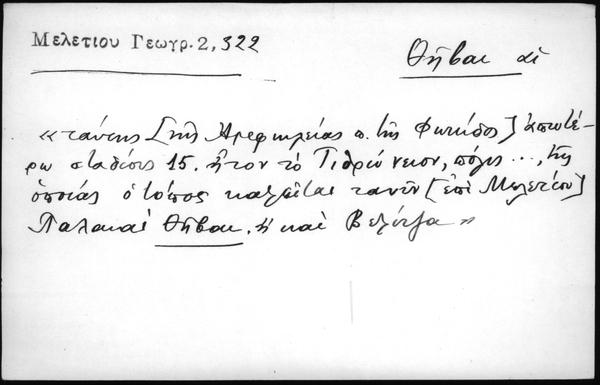 Μελετίου Γεωγρ. 2, 322
Θῆβαι αἱ
«ταύτης [τῆς Ἀμφικλείας π. τῆς Φωκίδος] ἀπωτέ-
ρω σταδίους 15. ἦτον τὸ Τιθρώνειον, πόλις..., τῆς
ὁποίας ὁ τόπος καλεῖται τανῦν [ἐπὶ Μελετίου]
Παλαιαὶ Θῆβαι, ἢ καὶ Βελίτζα»